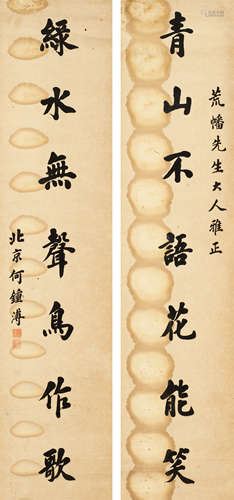 荒幡先生大人雅正
青山不語花能笑
綠水無聲鳥作歌
北京何鐘溥